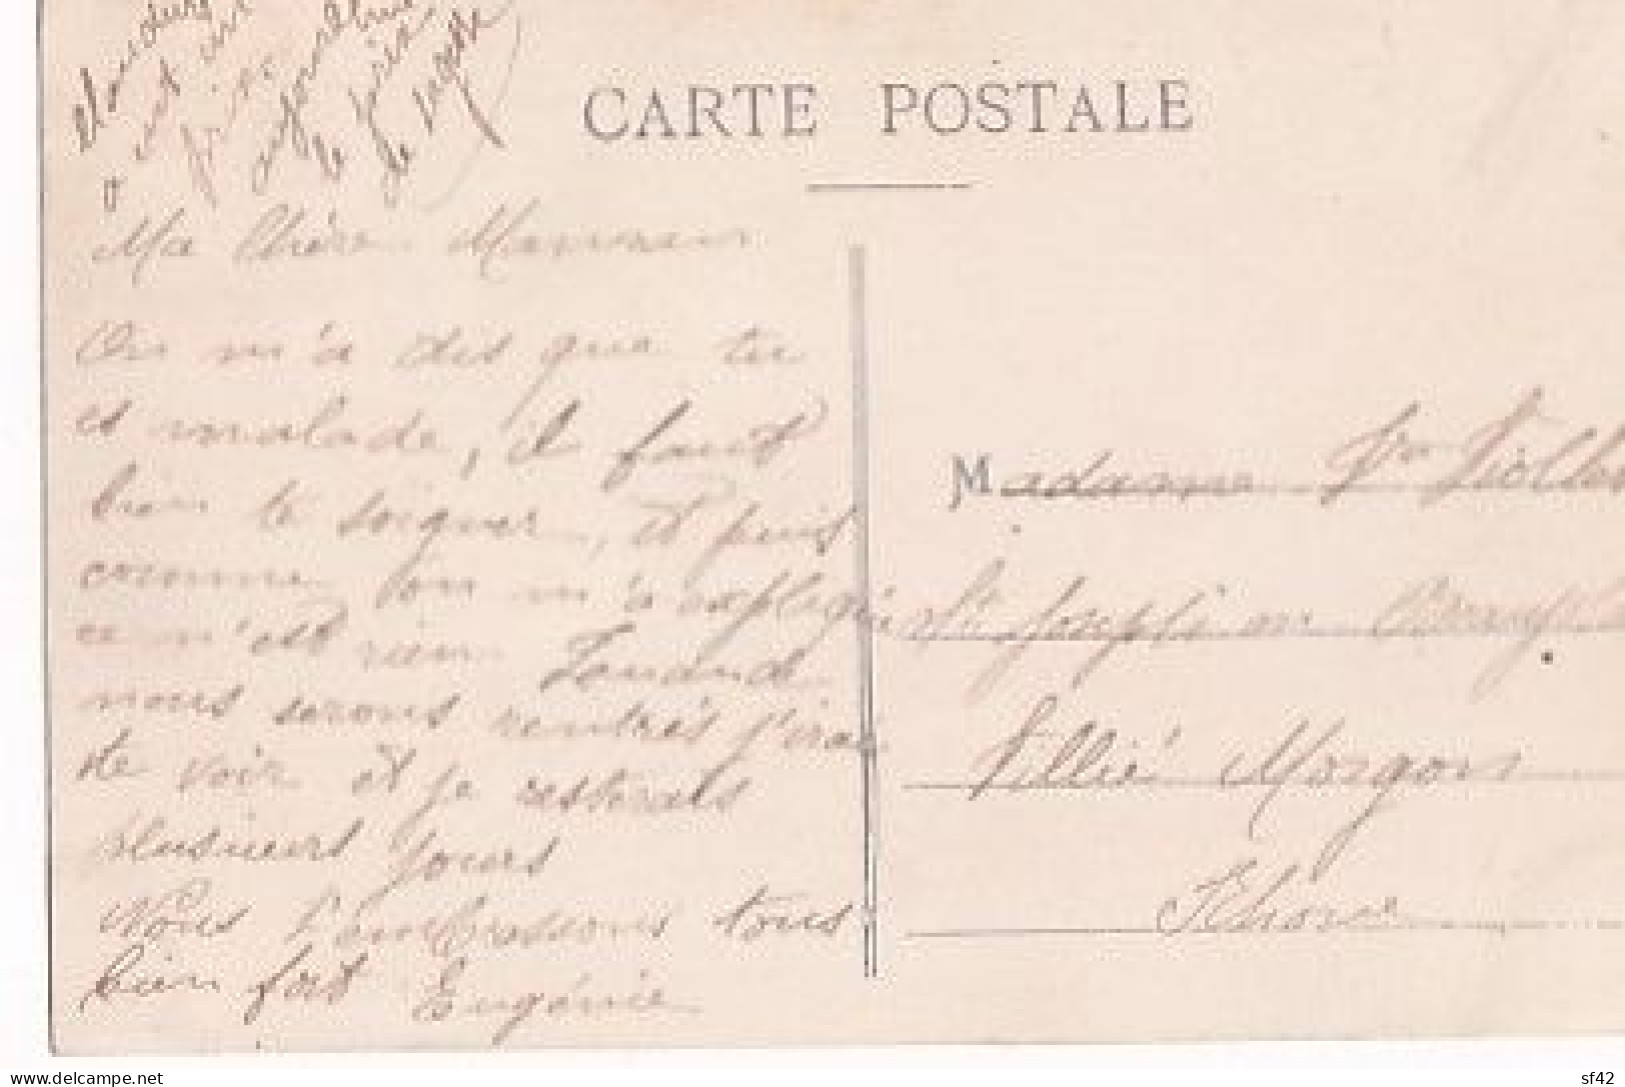 CARTE POSTALE
le
de
Ma Chère Maman
On m'a dis que tu
es malade, il faut
bien te soigner, et puis
comme on m'a expliqué
ce n'est rien Quand
nous serons rentrés j'irai
te voir et je resterais
plusieurs jours
Nous t'embrassons tous
bien fort Eugénie
Madame Vve
St Joseph en
Villié Morgon
Rhône
www.delcampe.net
sf42